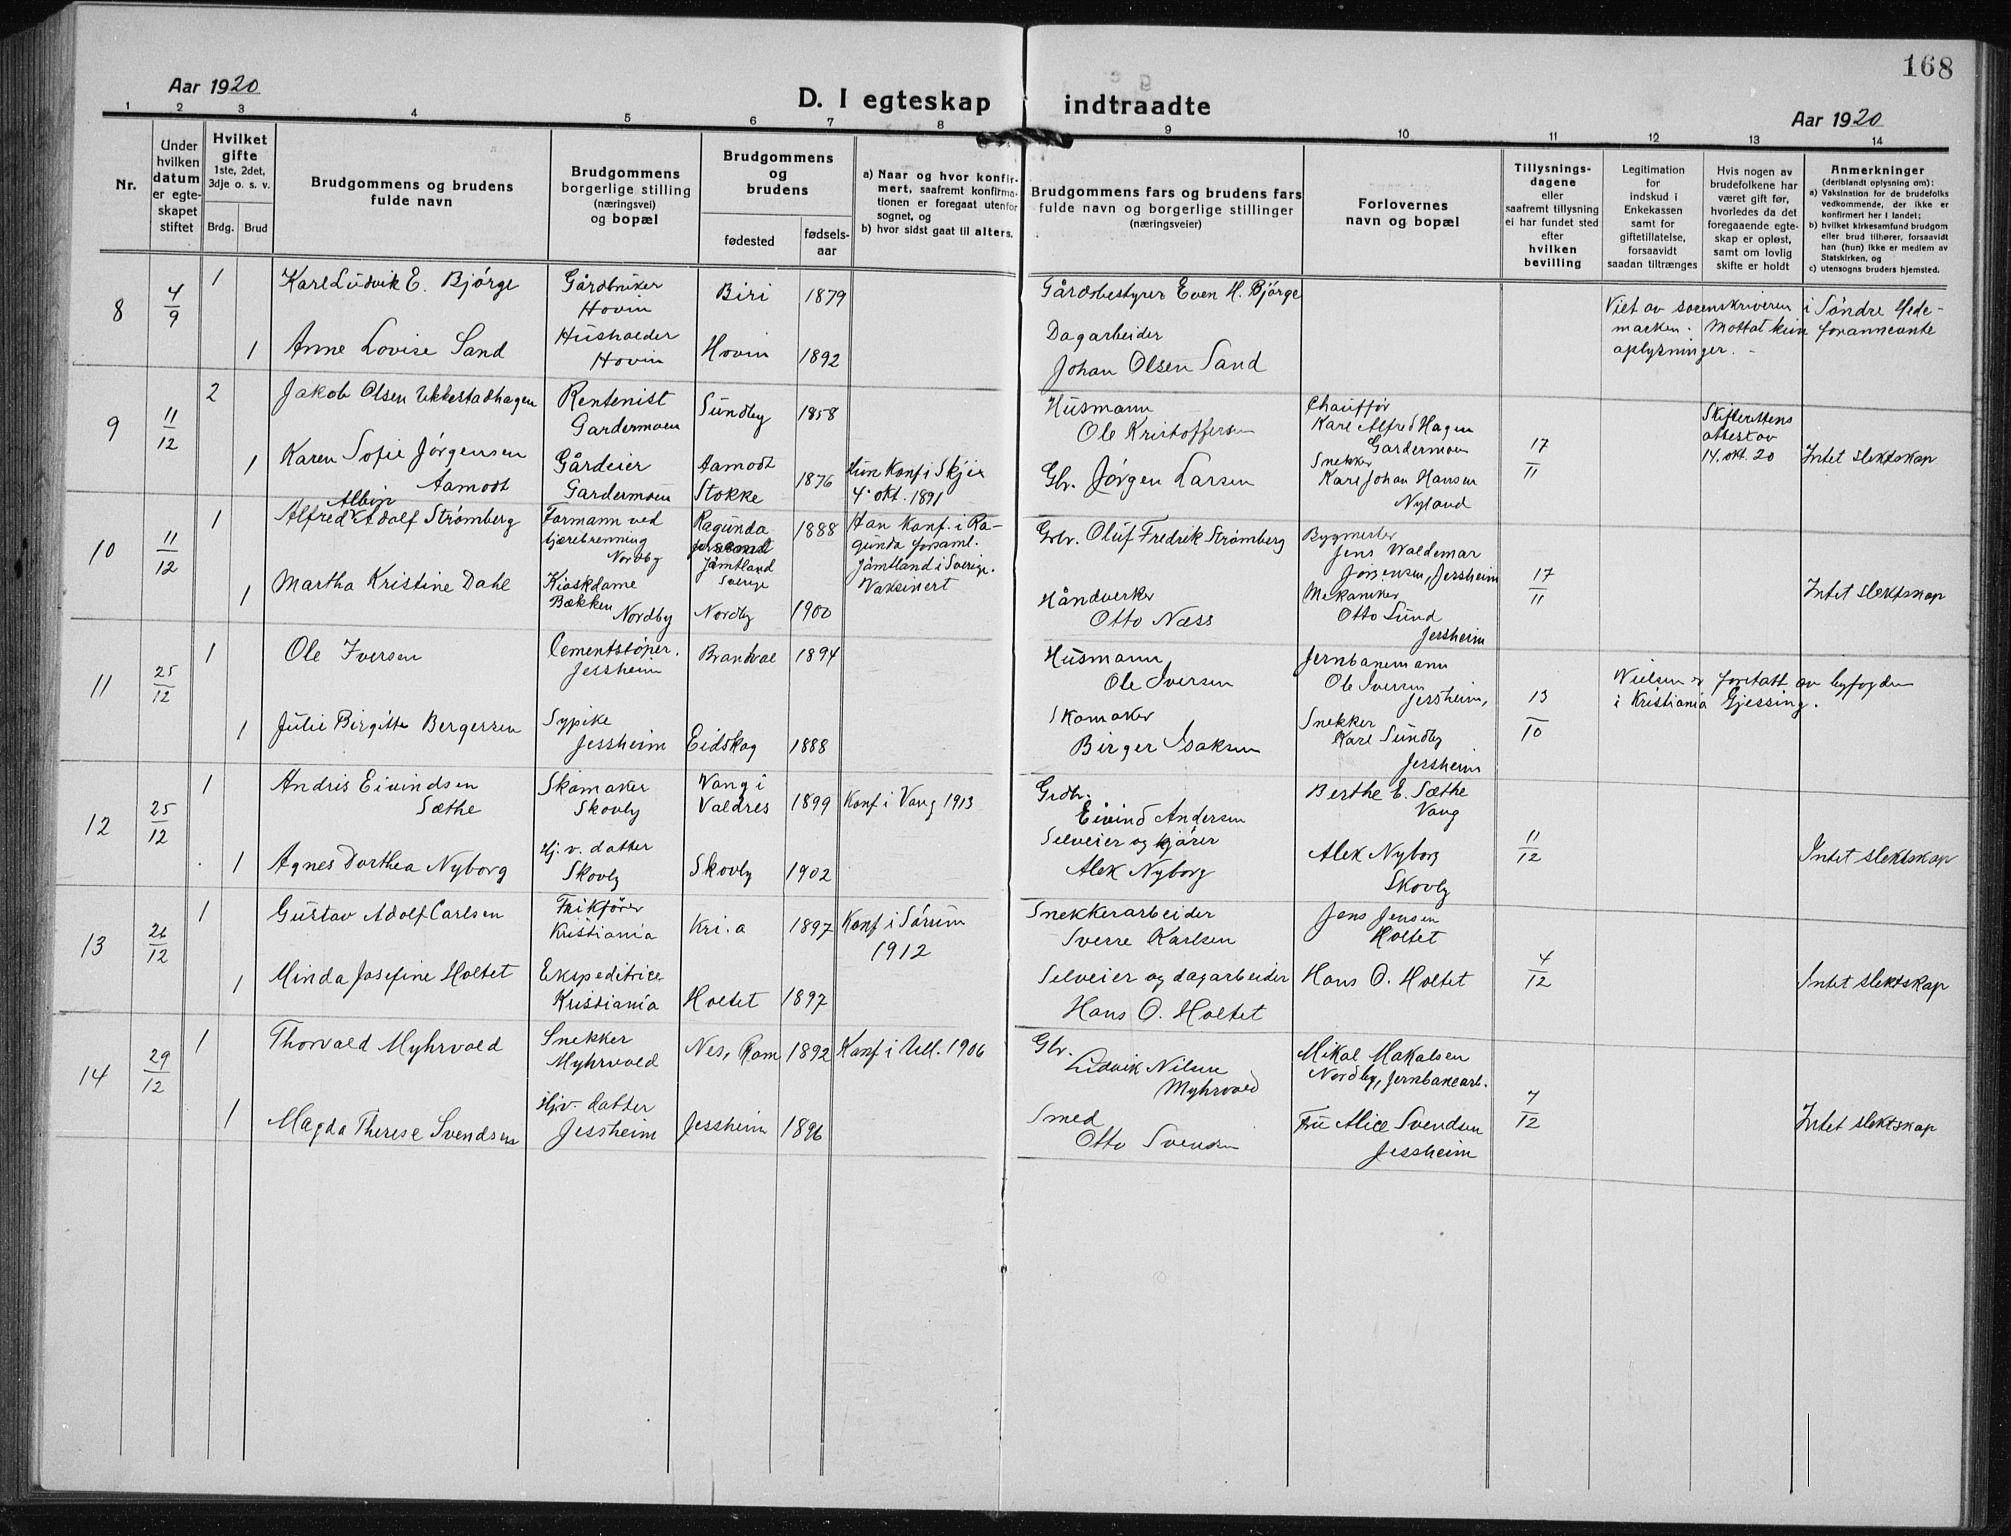 168
Aar 1920
D. I egteskap indtraadte
Aar 1920
1 2 3 4 5 6 7 8 9 10 11 12 13 14
Nr.
Under
hvilken
datum
er egte-
skapet
stiftet
Hvilket
gifte
1ste, 2det,
3dje o. s. v.
Brdg. Brud
Brudgommens og brudens
fulde navn
Brudgommens
borgerlige stilling
(næringsvei)
og bopæl
Brudgommens
og
brudens
fødested
fødsels-
aar
a) Naar og hvor konfir-
mert, saafremt konfirma-
tionen er foregaat utenfor
sognet, og
b) hvor sidst gaat til alters.
Brudgommens fars og brudens fars
fulde navn og borgerlige stillinger
(næringsveier)
Forlovernes
navn og bopæl
Tillysnings-
dagene
eller
saafremt tillysning
ei har fundet sted
efter
hvilken
bevilling
Legitimation
for
indskud i
Enkekassen
samt for
giftetillatelse,
forsaavidt
saadan tiltrænges
Hvis nogen av
brudefolkene har
været gift før,
hvorledes da det
foregaaende egte-
skap er opløst,
samt om lovlig
skifte er holdt
Anmerkninger
(deriblandt oplysning om):
a) Vaksination for de brudefolks
vedkommende, der ikke er
konfirmert her i landet;
b) hvilket kirkesamfund brudgom
eller brud tilhører, forsaavidt
han (hun) ikke er medlem av
Statskirken, og
c) utensogns bruders hjemsted.
8
4/9
1
Karl Ludvik E. Bjørge
Gårdbruker
Hovin
Biri
1879
Gårdsbestyrer Even H. Bjørge
Viet av sorenskriveren i Søndre Hede-
marken. Mottat kun forannevnte
oplysninger.
1
Anne Lovise Sand
Husholder
Hovin
Hovin
1892
Dagarbeider
Johan Olsen Sand
9
11/12
2
Jakob Olsen Ukkestadhagen
Rentenist
Gardermoen
Sundby
1858
Husmann
Ole Kristoffersen
Chauffør
Karl Alfred Hagen
Gardermoen
17/11
Skifterettens
attest av
14. okt. 20
Intet slektskap
1
Karen Sofie Jørgensen
Aamodt
Gårdeier
Gardermoen
Aamodt
Stokke
1876
Hun Konf i Skjee
4. okt. 1891
Gbr. Jørgen Larsen
Snekker
Karl Johan Hansen
Nyland
10
11/12
1
Albin
Alfred Adolf Strømberg
Formann ved
tjærebrenning
Nordby
Ragunda
Jämtland
Sverige
1888
Han Konf. i Ra-
gunda forsaml.
Jämtland i Sverige.
Vaksinert
Grbr. Oluf Fredrik Strømberg
Bygmester
Jens Waldemar
Jørgensen, Jessheim
17/11
Intet slektskap
1
Martha Kristine Dahl
Kioskdame
Bækken
Nordby
Nordby
1900
Håndverker
Otto Næss
Mekaniker
Otto Lund
Jessheim
11
25/12
1
Ole Iversen
Cementstøper.
Jessheim
Brandval
1894
Husmann
Ole Iversen
Jernbanemann
Ole Iversen
Jessheim,
13/10
Vielsen er foretatt av byfogden
i Kristiania Gjessing.
1
Julie Birgitte Bergersen
Sypike
Jessheim
Eidskog
1888
Skomaker
Birger Isaksen
Snekker
Karl Sundby
Jessheim
12
25/12
1
Andris Eivindsen
Sæthe
Skomaker
Skovly
Vang i
Valdres
1899
Konf i Vang 1913
Grdbr.
Eivind Andersen
Berthe E. Sæthe
Vang
11/12
Intet slektskap
1
Agnes Dorthea Nyborg
Hj. v. datter
Skovly
Skovly
1902
Selveier og kjører
Alek Nyborg
Alek Nyborg
Skovly
13
26/12
1
Gustav Adolf Carlsen
Trikfører
Kristiania
Kri.a
1897
Konf i Sørum
1912
Snekkerarbeider
Sverre Karlsen
Jens Jensen
Holtet
4/12
Intet slektskap
1
Minda Josefine Holtet
Ekspeditrice
Kristiania
Holtet
1897
Selveier og dagarbeider
Hans O. Holtet
Hans O. Holtet
14
29/12
1
Thorvald Myhrvold
Snekker
Myhrvold
Nes, Rom
1892
Konf i Ull. 1906
Gbr.
Ludvik Nilsen
Myhrvold
Mikal Makalsen
Nordby, jernbanearb.
7/12
Intet slektskap
1
Magda Therese Svendsen
Hjv. datter
Jessheim
Jessheim
1896
Smed
Otto Svendsen
Fru Alice Svendsen
Jessheim